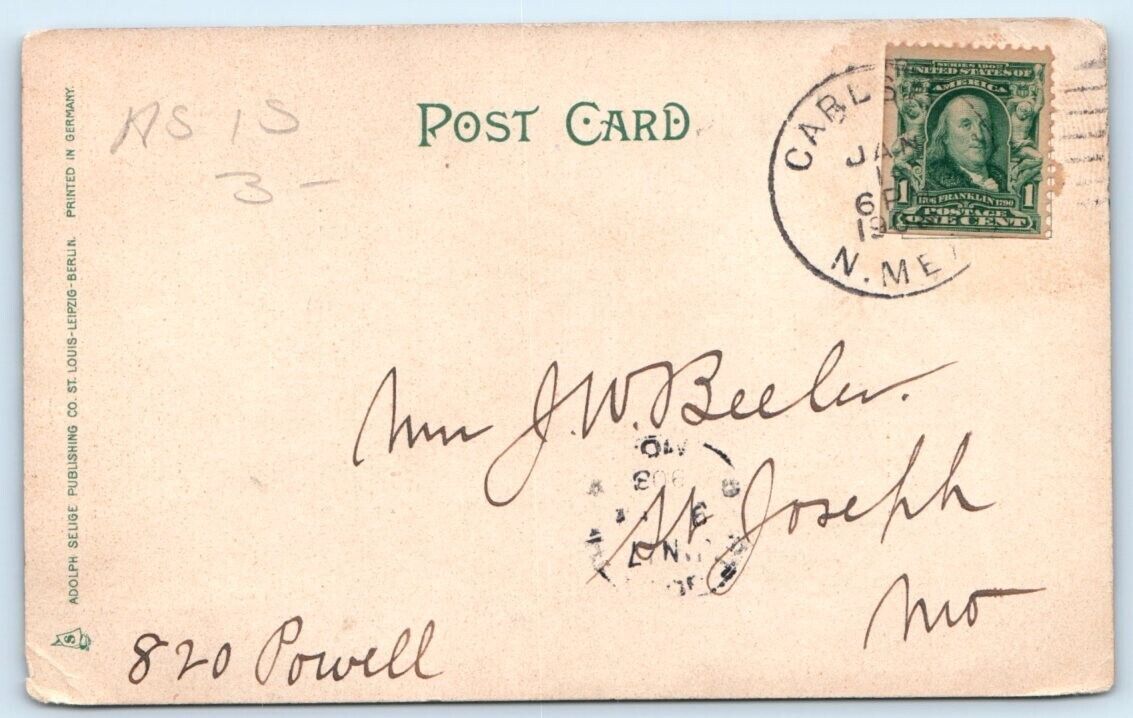 POST CARD
AS IS
3-
ADOLPH SELIGE PUBLISHING CO. ST. LOUIS-LEIPZIG-BERLIN. PRINTED IN GERMANY.
CARLS
JAN
6P
190
N. MEX
SERIES 1902
UNITED STATES OF
AMERICA
1 1706 FRANKLIN 1790 1
POSTAGE
ONE CENT
J. W. Beeler.
St Joseph
Mo
820 Powell
MO.
S